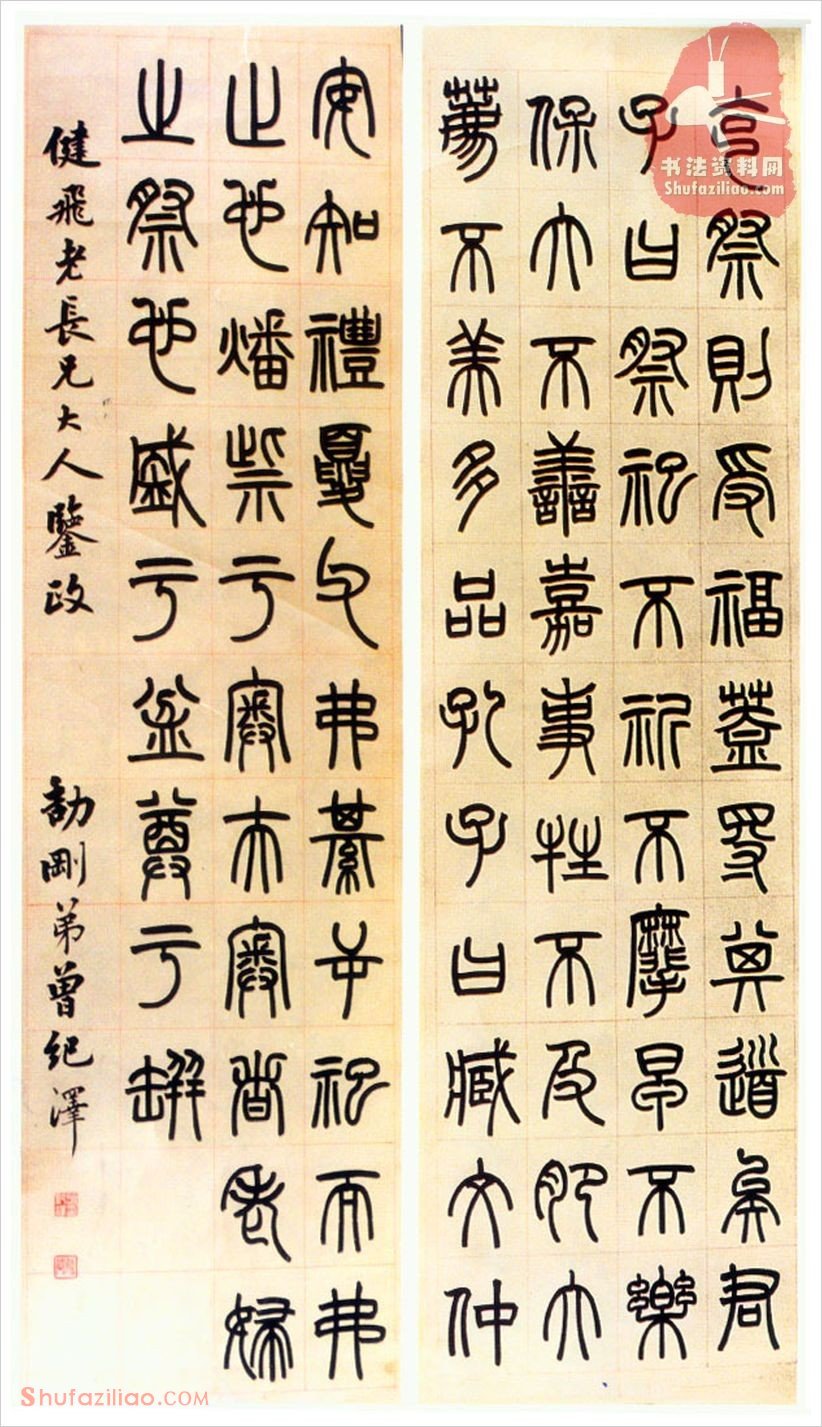 克祭則受福蓋㝵其道矣君
子曰祭祀不祈不麾早不樂
保大不善嘉事牲不及肥大
薦不美多品孔子曰臧文仲
安知禮夏父弗綦屰祀而弗
止也燔柴亏奧夫奧者老婦
之祭也盛亏盆尊亏缾
健飛老長兄大人鑒政
劼剛弟曾紀澤
书法资料网
Shufaziliao.com
Shufaziliao.COM